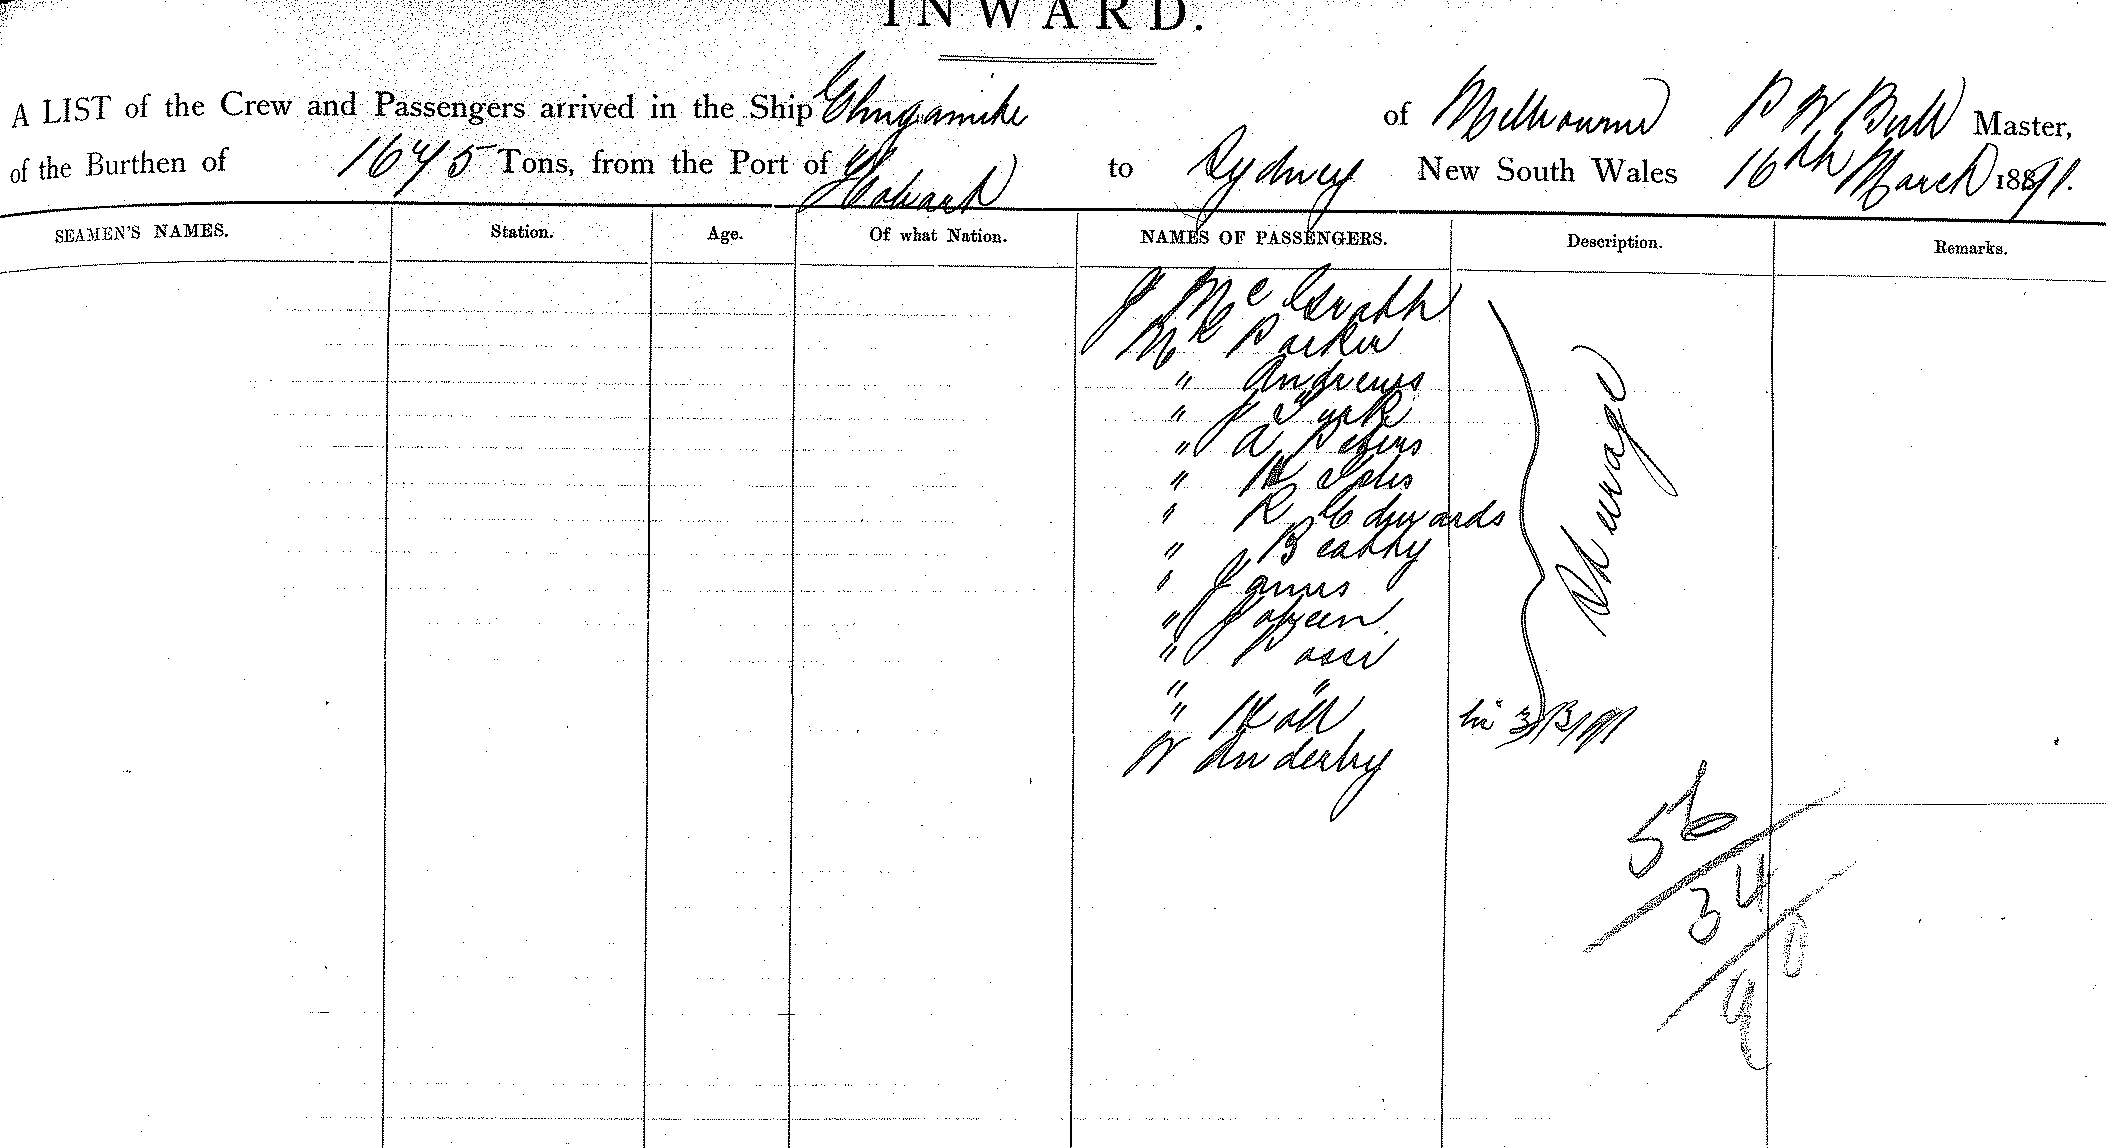 INWARD.
A LIST of the Crew and Passengers arrived in the Ship Elingamite of Melbourne P W Bull Master,
of the Burthen of 1675 Tons, from the Port of Hobart to Sydney New South Wales 16th March 1891.
SEAMEN'S NAMES. Station. Age. Of what Nation. NAMES OF PASSENGERS. Description. Remarks.
J McGrath
Mr Parker
" Andrews
" J Turk
" A Peters
" H
" R Edwards
" Beatty
" James
" Jobson
" Rossi
" "
" Hall
W Anderby
Steerage
56
34
90